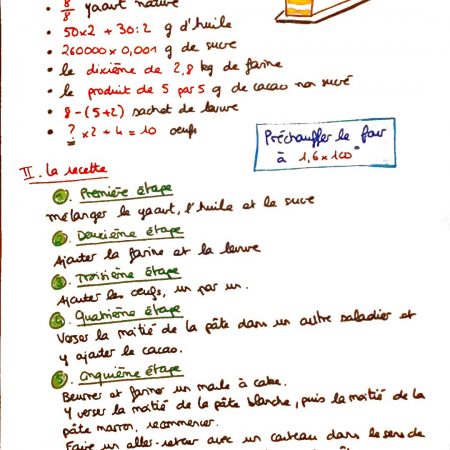 • 8/8 yaourt nature
• 50x2 + 30:2 g d'huile
• 260000 x 0,001 g de sucre
• le dixième de 2,8 kg de farine
• le produit de 5 par 5 g de cacao non sucré
• 8-(5+2) sachet de levure
• ? x2 + 4 = 10 oeufs
Préchauffer le four
à 1,6 x 100°
II. La recette
1. Première étape
mélanger le yaourt, l'huile et le sucre
2. Deuxième étape
Ajouter la farine et la levure
3. Troisième étape
Ajouter les oeufs, un par un.
4. Quatrième étape
Verser la moitié de la pâte dans un autre saladier et
y ajouter le cacao.
5. Cinquième étape
Beurrer et fariner un moule à cake.
Y verser la moitié de la pâte blanche, puis la moitié de la
pâte marron, recommencer.
Faire un aller-retour avec un couteau dans le sens de